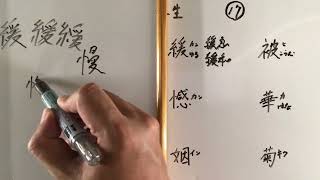 緩緩緩
慢
⑰
緩 カン ゆる 緩急 緩和
被 ヒ こうむ
憾 カン
華 カ はな
姻 イン
菊 キク